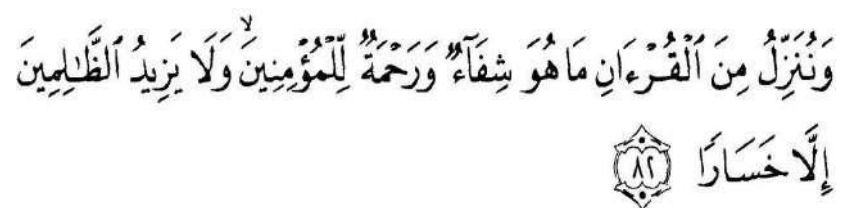 وَنُنَزِّلُ مِنَ ٱلْقُرْءَانِ مَا هُوَ شِفَآءٌ وَرَحْمَةٌ لِّلْمُؤْمِنِينَ ۙ وَلَا يَزِيدُ ٱلظَّـٰلِمِينَ
إِلَّا خَسَارًا ٨٢